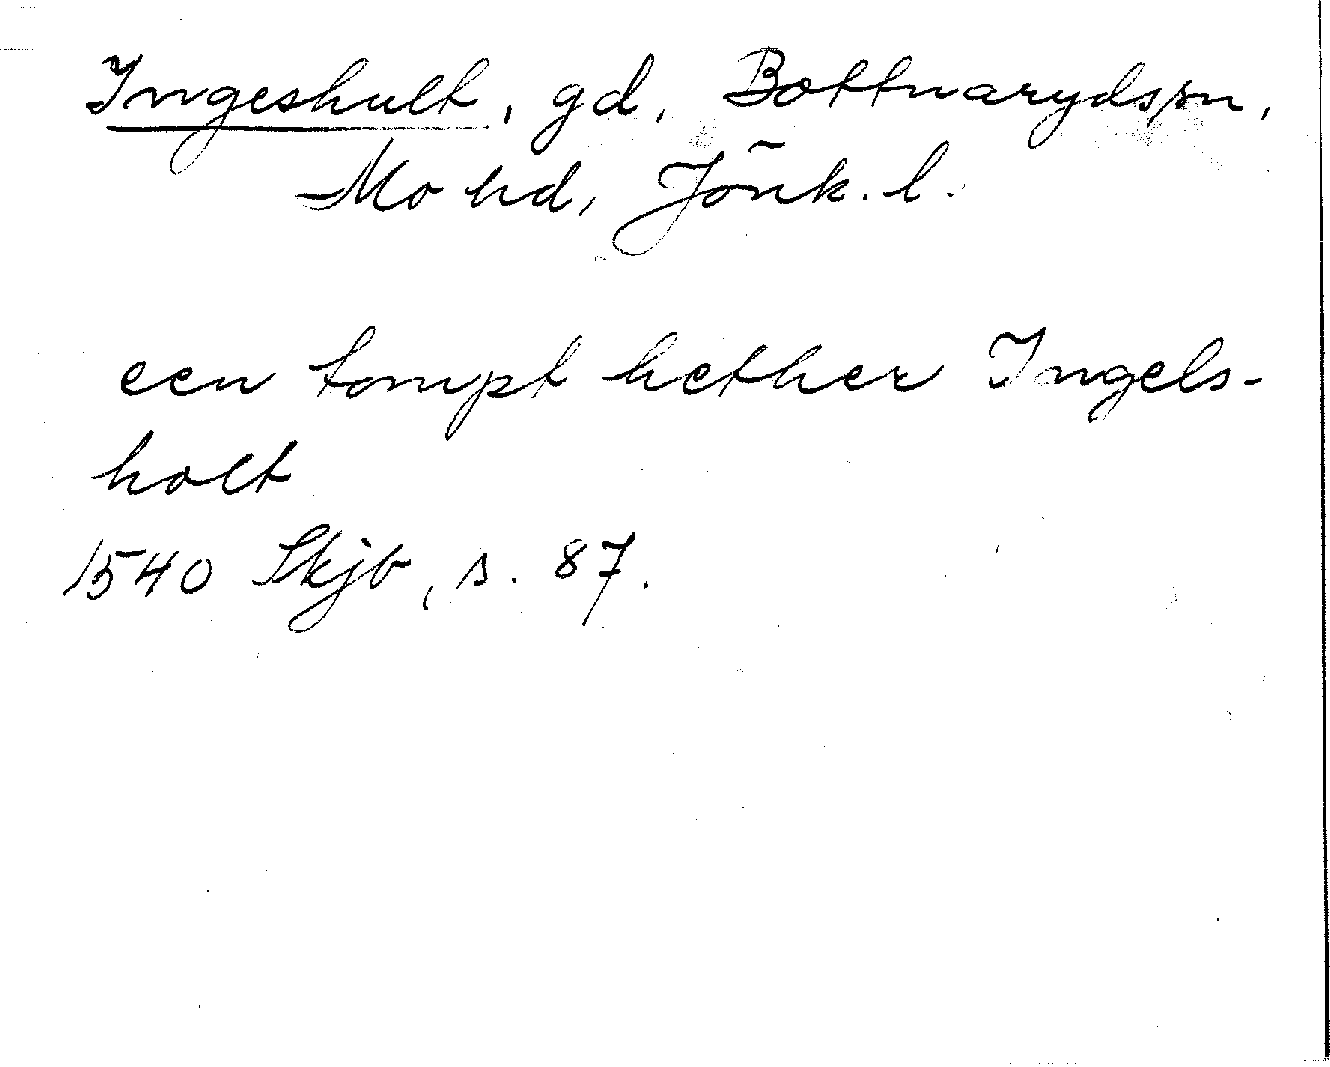 Ingeshult, gd, Bottnarydssn,
Mo hd, Jönk. l.
een tompt hether Ingels-
holt
1540 Skjb, s. 87.